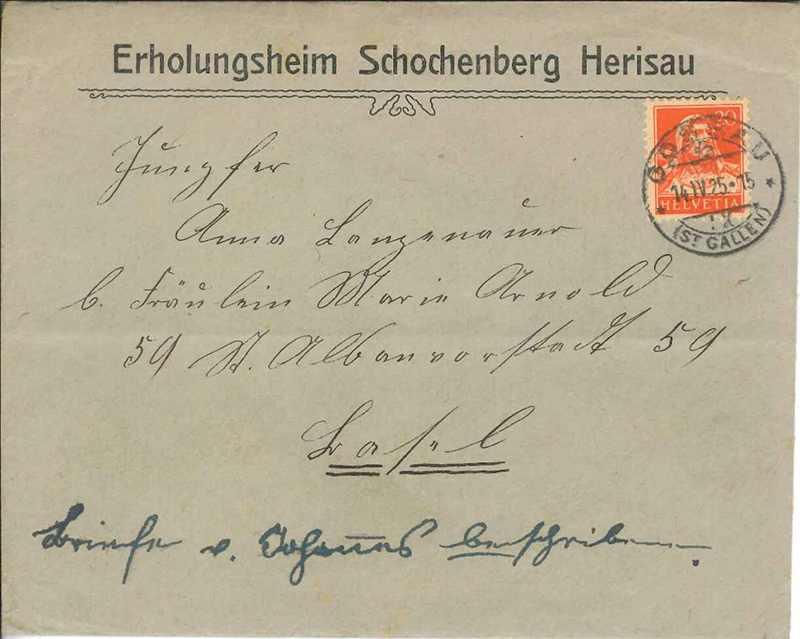 Erholungsheim Schochenberg Herisau
20
GOSSAU
14.IV.25·15
HELVETIA
(ST GALLEN)
Jungfer
Anna Langenauer
b. Fräulein Marie Arnold
59 St. Albanvorstadt 59
Basel
Briefe v. Johannes beschrieben.